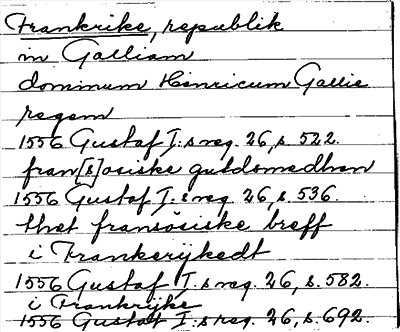 Frankrike, republik
in Galliam
dominum Henricum Gallie
regem
1556 Gustaf I:s reg. 26, s. 522.
fran[s]osiske guldsmedhen
1556 Gustaf I:s reg. 26, s. 536.
thet fransösiske breff
i Frankerijkedt
1556 Gustaf I:s reg. 26, s. 582.
i Frankrijke
1556 Gustaf I:s reg. 26, s. 692.